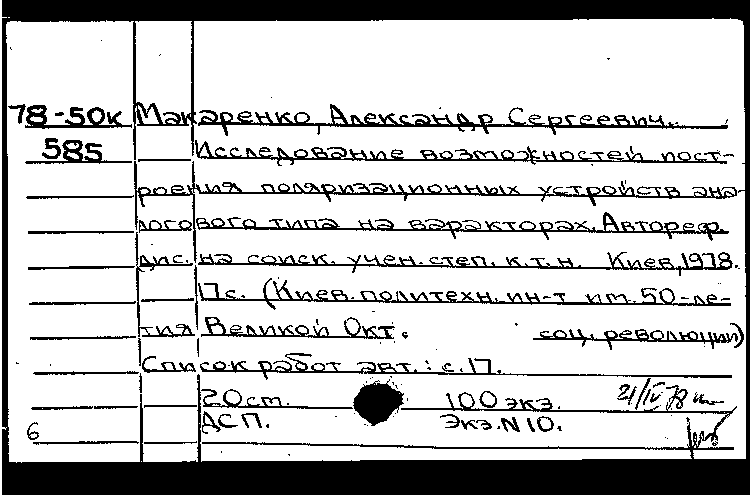 78-50к Макаренко, Александр Сергеевич.
585 Исследование возможностей пост-
роения поляризационных устройств ана-
логового типа на варакторах. Автореф.
дис. на соиск. учен. степ. к.т.н. Киев, 1978.
17с. (Киев. политехн. ин-т им. 50-ле-
тия Великой Окт. соц. революции)
Список работ авт.: с. 17.
20 ст. 100 экз. 21/IV 78
6 ДСП. Экз. N 10.